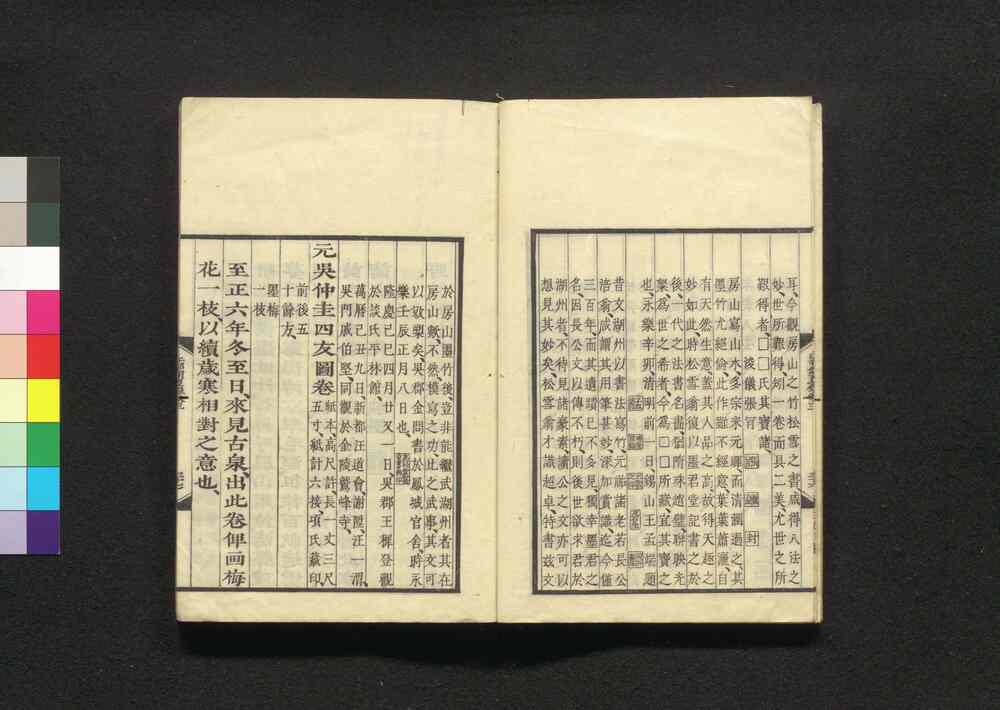 耳、今觀房山之竹、松雪之書、咸得八法之
妙、世所難得、矧一卷而具二美、尤世之所
觀得者、□□氏其寶諸、
浚儀張肎
房山寫山木、多宗米元暉、而清潤過之、其
墨竹尤絕倫、此作雖不經意、葉葉蕭灑、自
有天然生意、蓋其人品之高、故得天趣之
妙如此、時松雪翁後以墨君堂記書之於
後、一代之法書名畫、猶隋珠趙璧、聯映光
粲、爲世之希者、今爲□□所藏、宜其寶之
也、永樂辛卯清明前一日、錫山王孟端題
昔文湖州以書法寫竹、元蓟諸老若長公
浩翁、咸謂其用筆甚妙、深加賞識、迄今僅
三百年、而其遺蹟已不多見、獨幸墨君之
名、因長公文以傳、不朽、則後世欲求君於
湖州者、不待見諸豪素、讀公之文、亦可以
想見其妙矣、松雪翁才識超卓、特書兹文
於房山墨竹後、豈非能繼武湖州者、其在
房山歟、不然、模寫之功、此之武事、其文可
以敬槩矣、吳郡金問書於鳳城官舍、時永
樂壬辰正月八日也、
隆慶己巳四月廿又一日、吳郡王穉登觀
於談氏平林館、
萬曆己丑九日、新都汪道會、謝陛、汪一渭、
吳門戚伯堅同觀於金陵鷲峰寺、
元吳仲圭四友圖卷 紙本、高尺許、長一丈三尺
五寸、紙計六接、項氏藏印
前後五
十餘方、
墨梅
一枝
至正六年冬至日、來見古泉、出此卷俾画梅
花一枝、以續歲寒相對之意也、